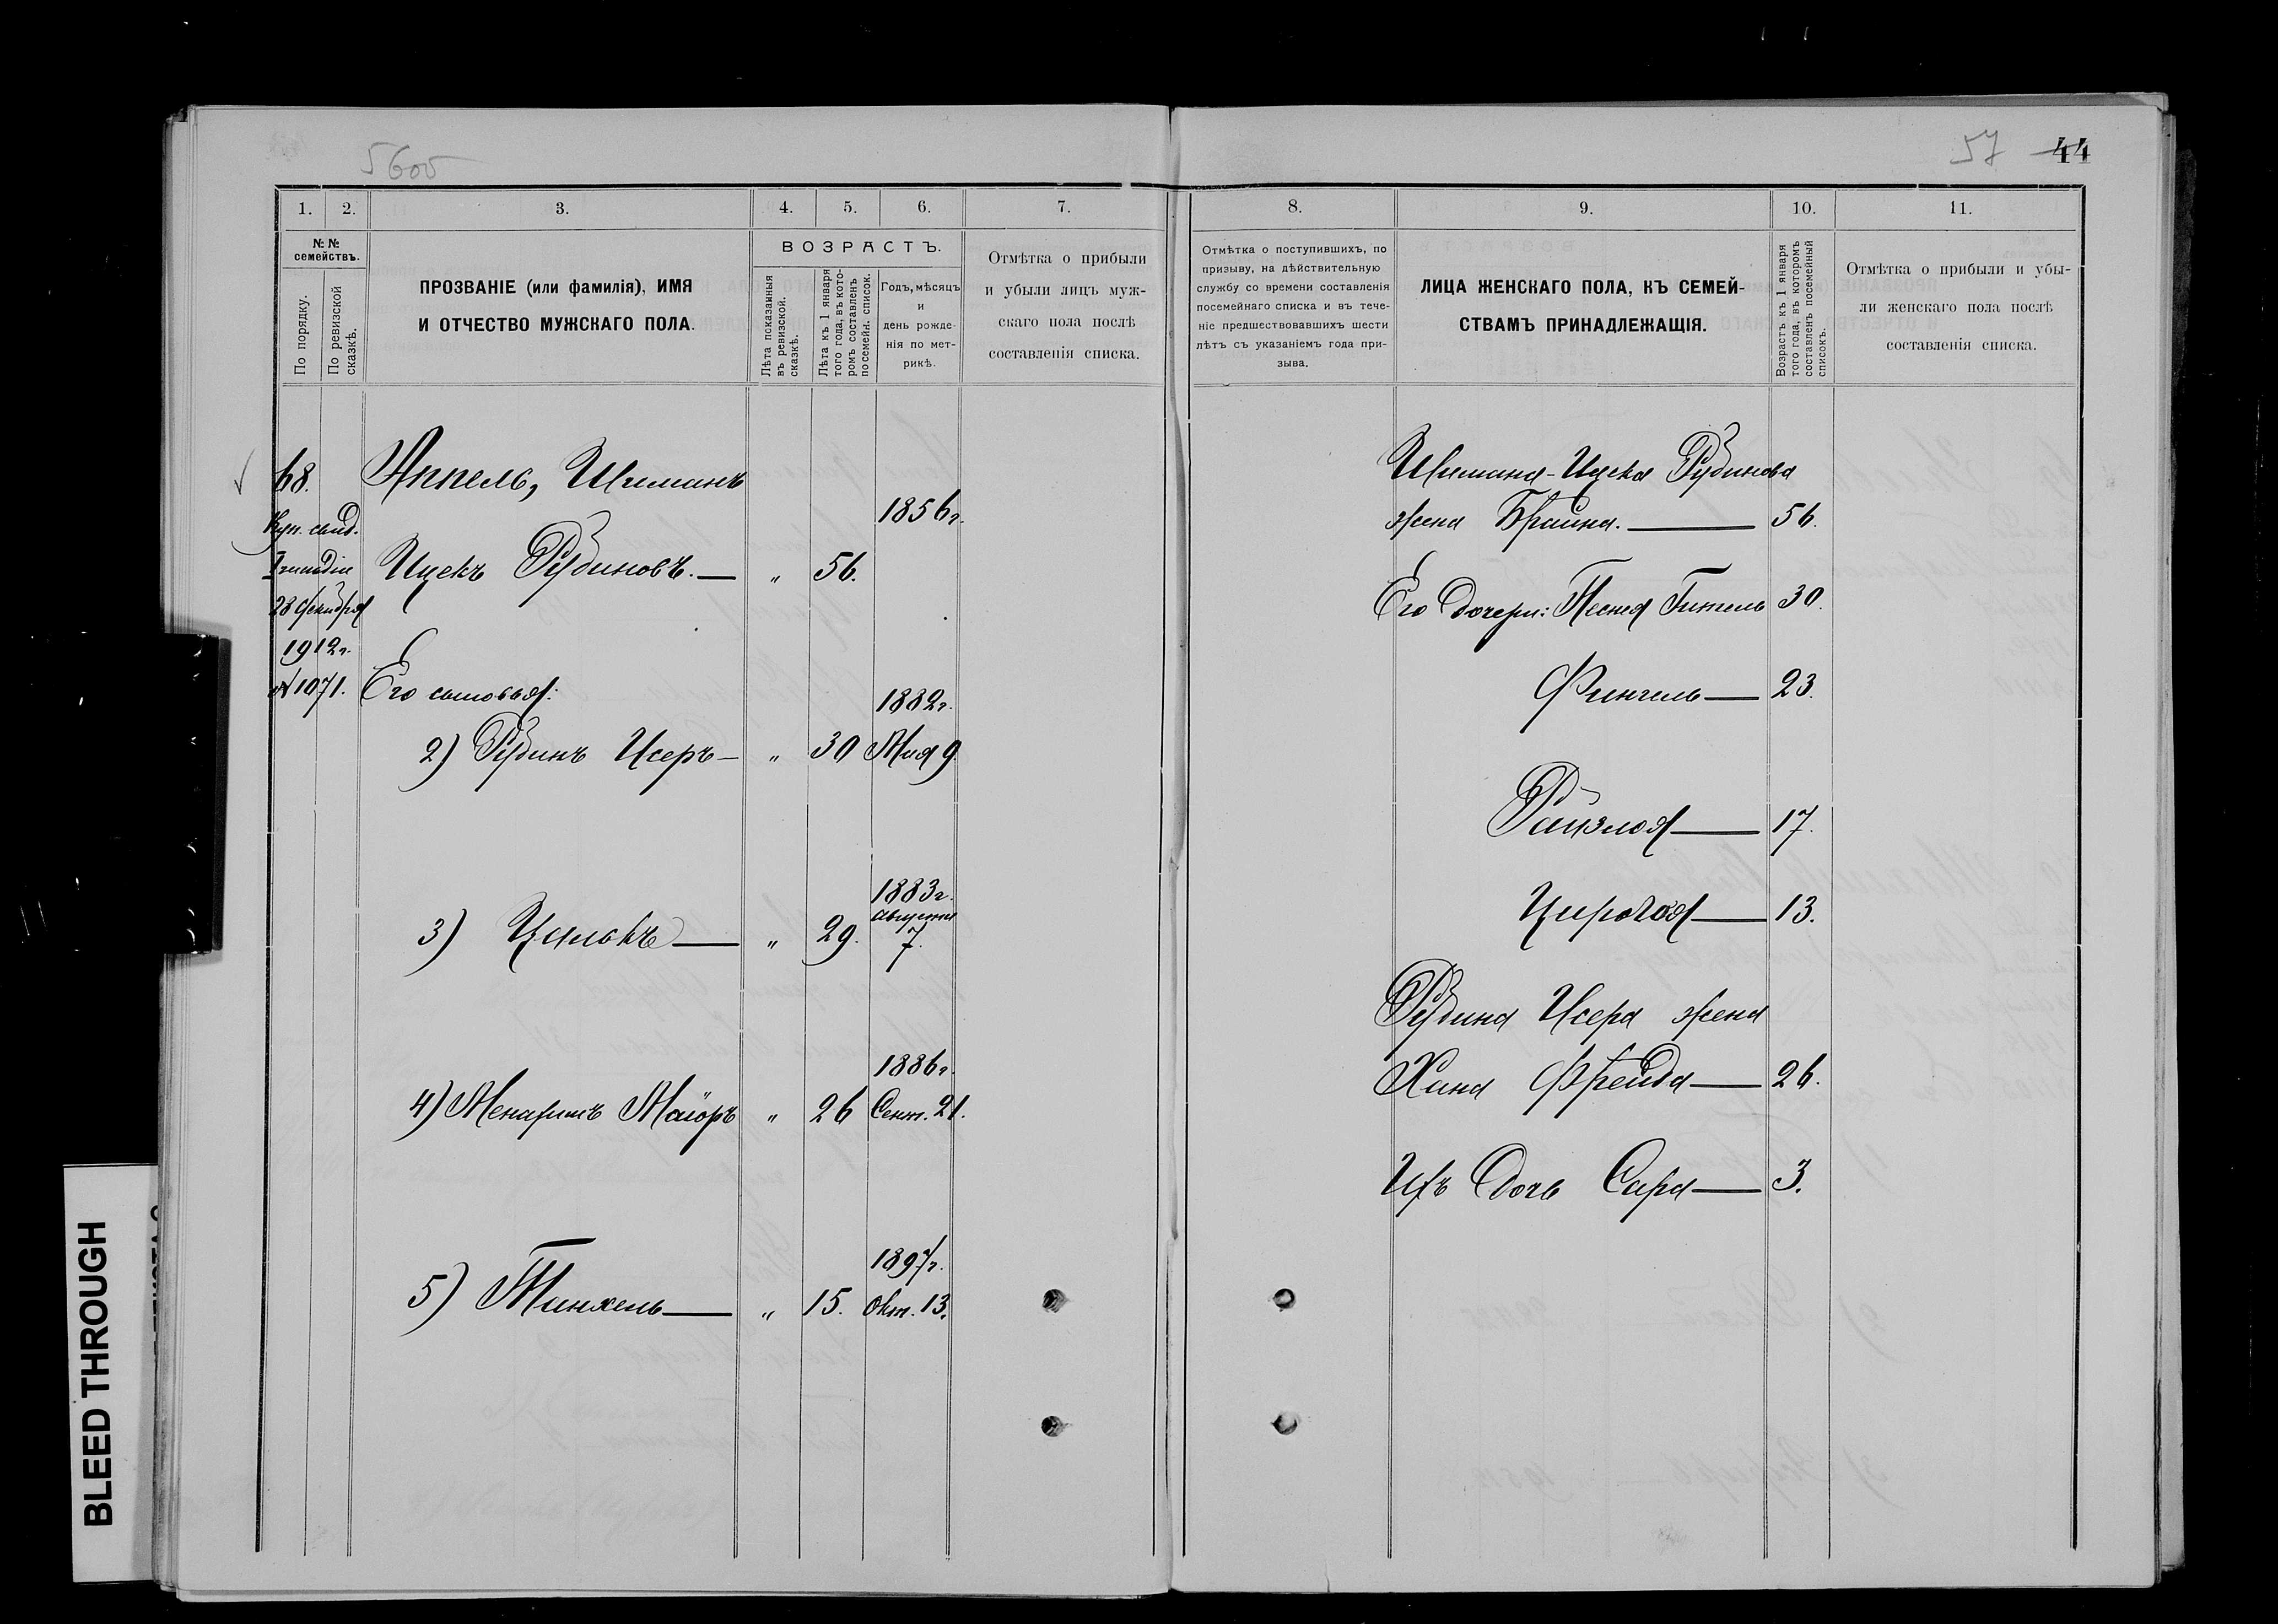 5600
57 44
1. 2. 3. 4. 5. 6. 7.
№ №
семействъ.
По порядку.
По ревизской
сказкѣ.
ПРОЗВАНІЕ (или фамилія), ИМЯ
И ОТЧЕСТВО МУЖСКАГО ПОЛА.
ВОЗРАСТЪ.
Лѣта показанныя
въ ревизской.
сказкѣ.
Лѣта къ 1 января
того года, въ кото-
ромъ составленъ
посемейн. список.
Годъ, мѣсяцъ
и
день рожде-
нія по мет-
рикѣ.
Отмѣтка о прибыли
и убыли лицъ муж-
скаго пола послѣ
составленія списка.
68.
Куп. свид.
I гильдіи
28 декабря
1912 г.
№ 1071.
Аппель, Шиманъ
1856 г.
Ицекъ Рубиновъ. — " 56.
Его сыновья:
1882 г.
2) Рубинъ Исеръ — " 30 Мая 9.
1883 г.
августа
3) Цалокъ — " 29. 7.
1886 г.
4) Менахимъ Маіоръ " 26 Сент. 21.
1897 г.
5) Манхель — " 15. Окт. 13.
8. 9. 10. 11.
Отмѣтка о поступившихъ, по
призыву, на дѣйствительную
службу со времени составленія
посемейнаго списка и въ тече-
ніе предшествовавшихъ шести
лѣтъ съ указаніемъ года при-
зыва.
ЛИЦА ЖЕНСКАГО ПОЛА, КЪ СЕМЕЙ-
СТВАМЪ ПРИНАДЛЕЖАЩІЯ.
Возрастъ къ 1 января
того года, въ которомъ
составленъ посемейный
списокъ.
Отмѣтка о прибыли и убы-
ли женскаго пола послѣ
составленія списка.
Шимана-Ицека Рубинова
жена Брайна. — 56.
Его дочери: Песня Гитель 30.
Фингель — 23.
Райзля — 17.
Цирля — 13.
Рубина Исера жена
Хана Фрейда — 26.
Ихъ дочь Сара — 3.
BLEED THROUGH